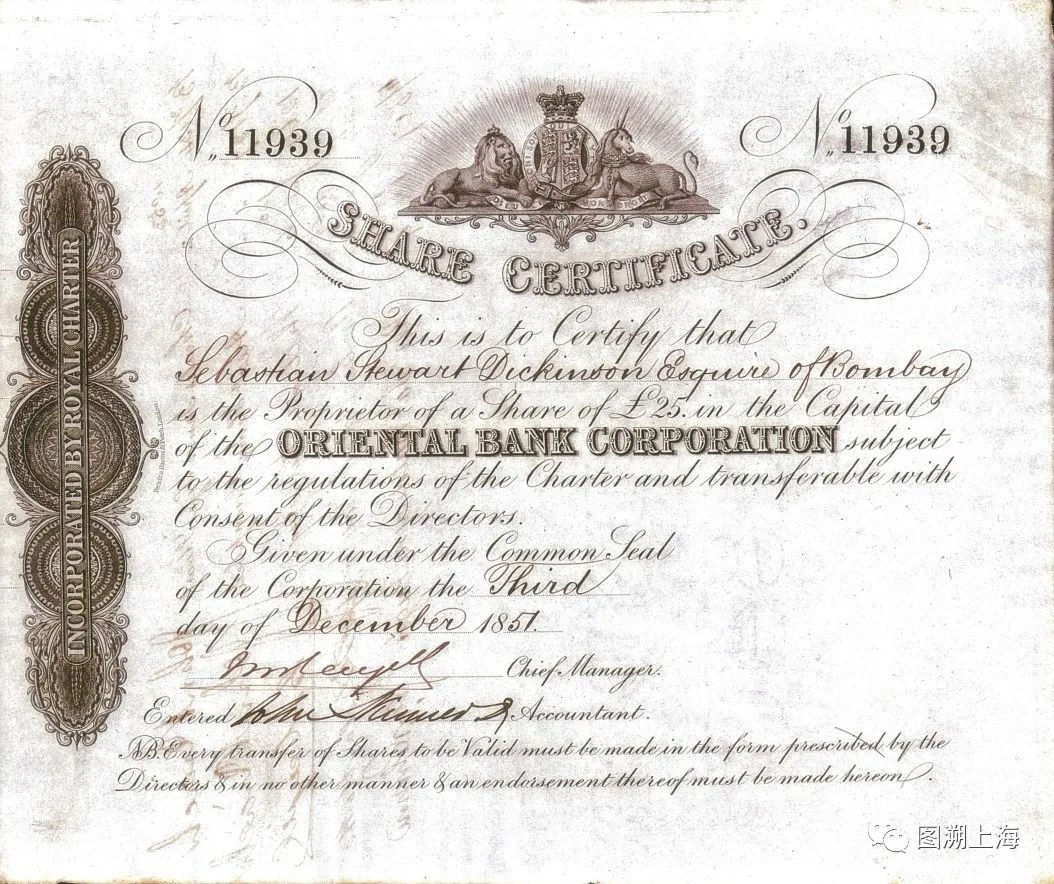 No. 11939
No. 11939
SHARE CERTIFICATE.
This is to Certify that
Sebastian Stewart Dickinson Esquire of Bombay
is the Proprietor of a Share of £25. in the Capital
of the ORIENTAL BANK CORPORATION subject
to the regulations of the Charter and transferable with
Consent of the Directors.
Given under the Common Seal
of the Corporation the Third
day of December 1851.
Chief Manager.
Entered John Accountant.
NB. Every transfer of Shares to be Valid must be made in the form prescribed by the
Directors & in no other manner & an endorsement thereof must be made hereon.
INCORPORATED BY ROYAL CHARTER
图溯上海